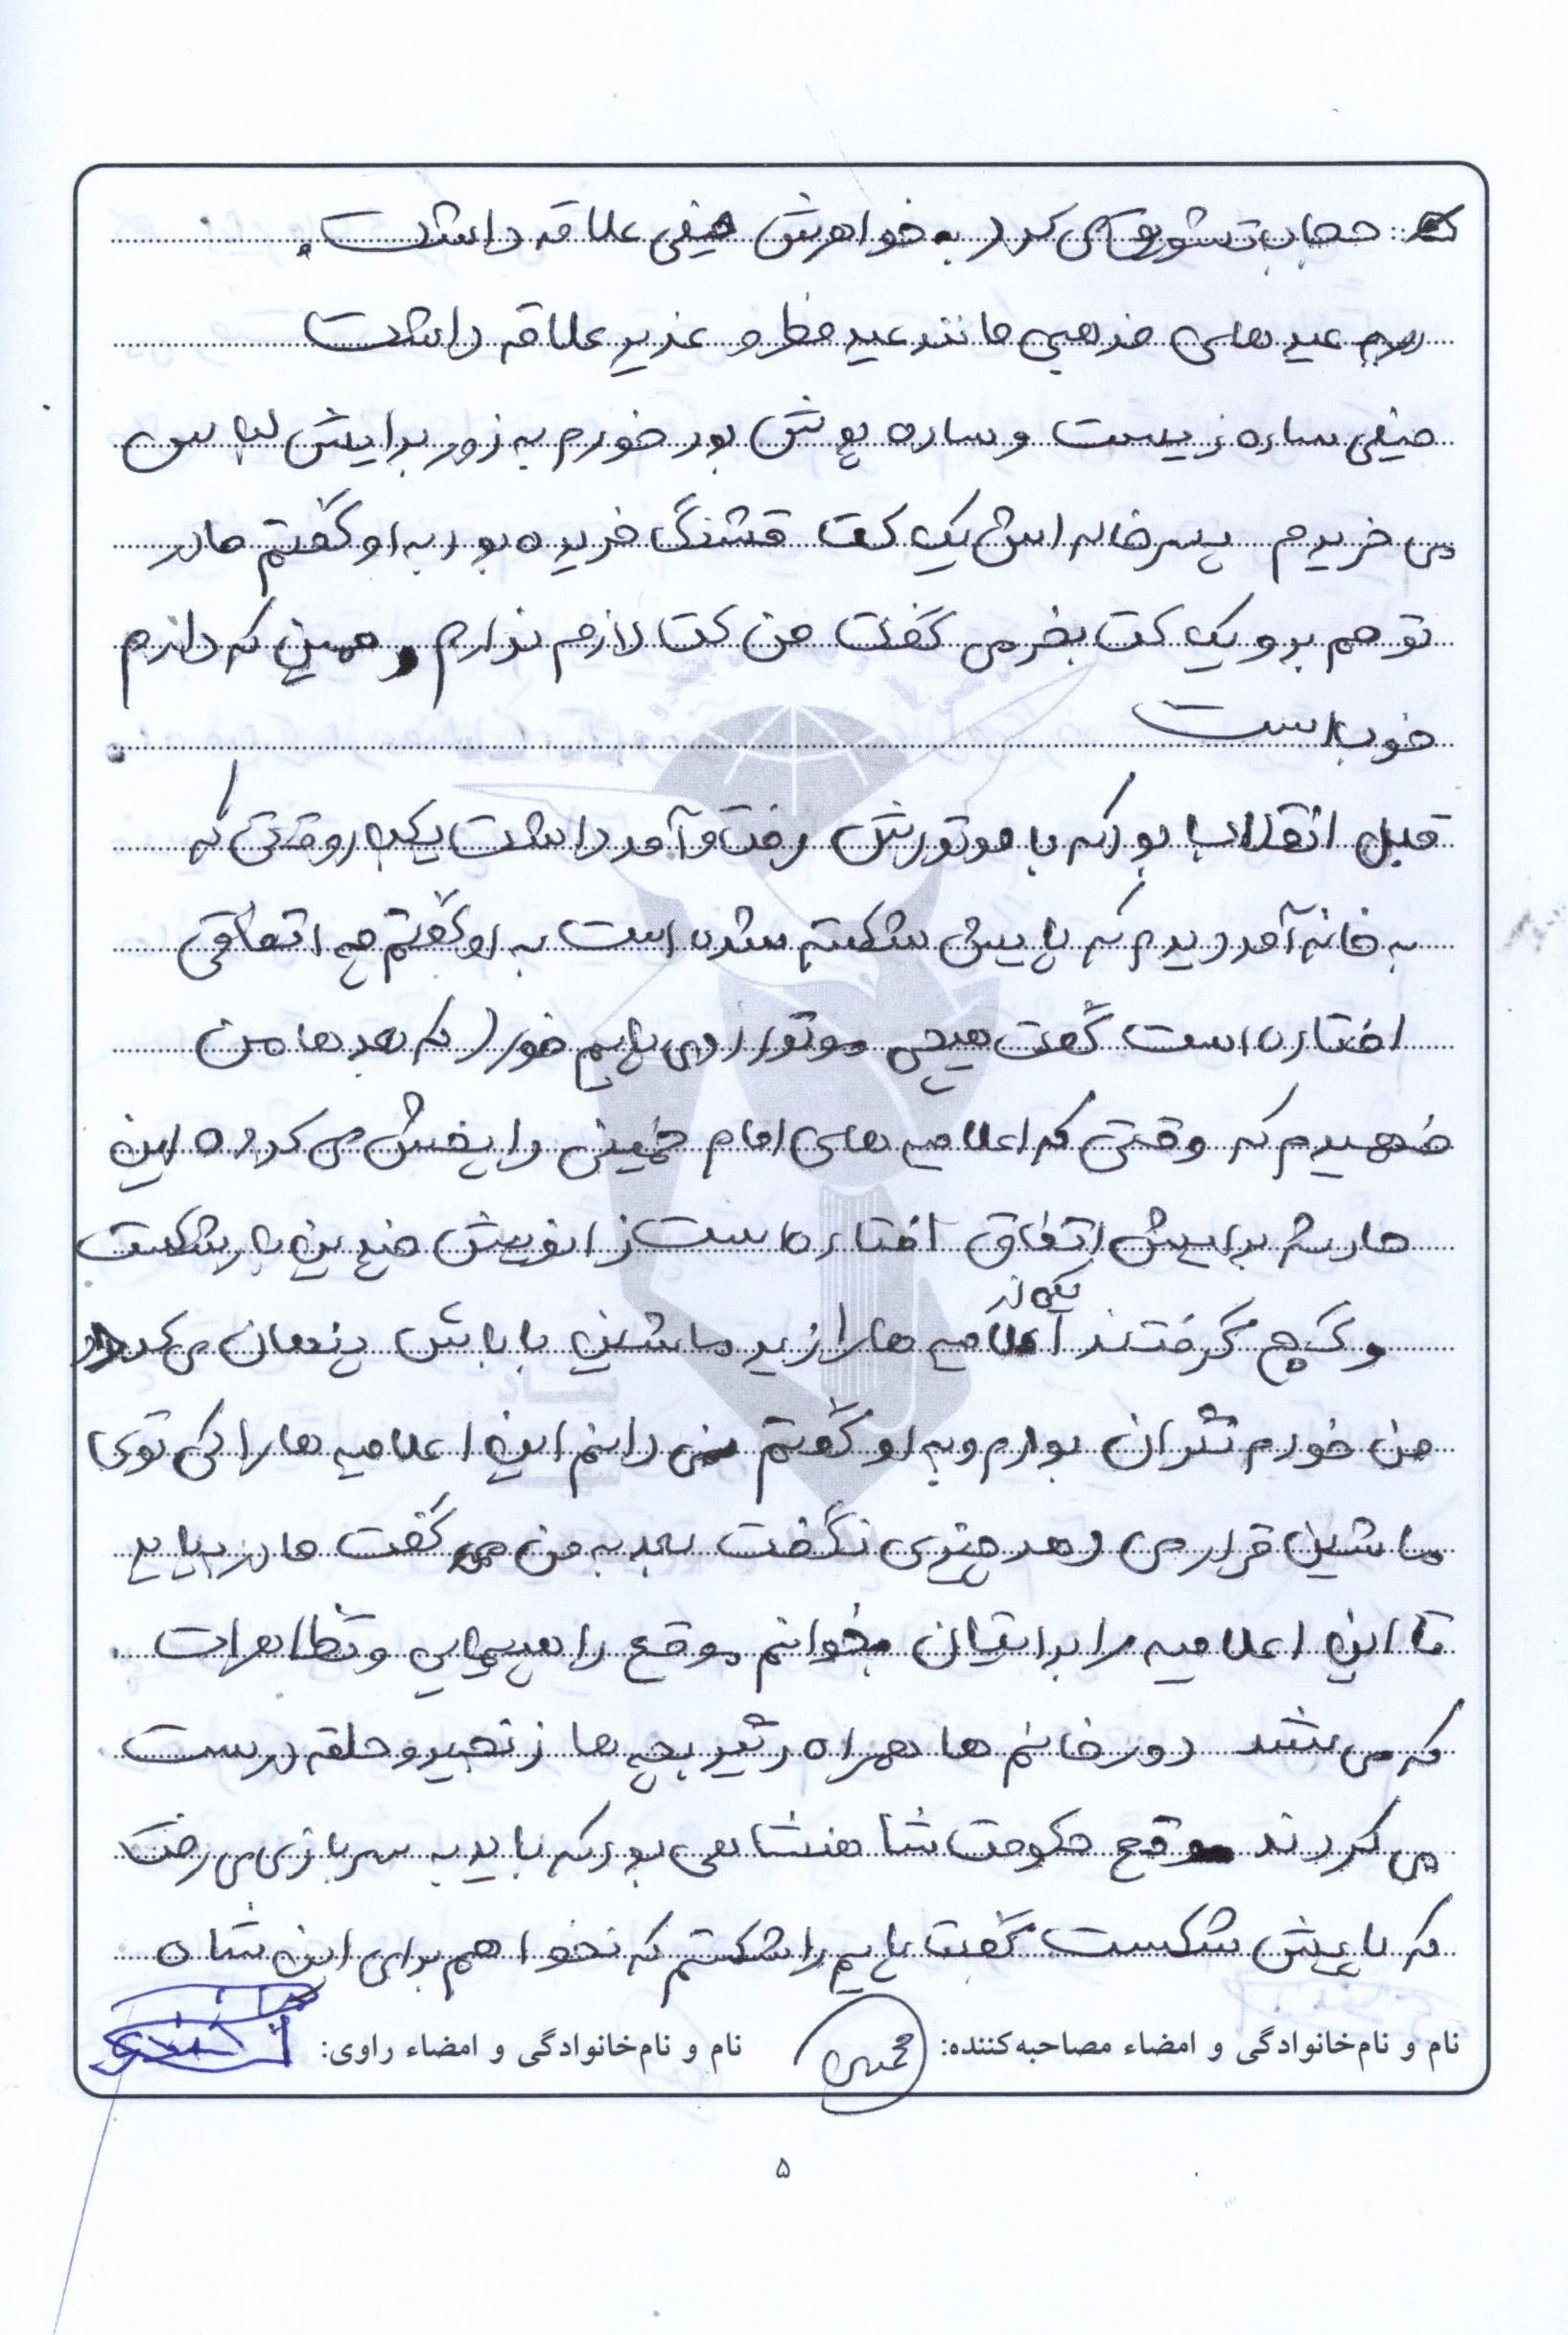 حجاب تشویق می کرد به خواهرش خیلی علاقه داشت.
عیدهای مذهبی مانند عید فطر و غدیر علاقه داشت
خیلی ساده زیست و ساده پوش بود خودم به زور برایش لباس
می خریدم پسرخاله اش یک کت قشنگ خریده بود به او گفتم مادر
تو هم برو یک کت بخر می گفت من کت لازم ندارم و همین که دارم
خوب است
قبل انقلاب بود که با موتورش رفت و آمد داشت یکبار وقتی که
به خانه آمد دیدم که پایش شکسته شده است به او گفتم چه اتفاقی
افتاده است گفت هیچی موتور روی پایم خورد که بعدها من
فهمیدم که وقتی که اعلامیه های امام خمینی را پخش می کرده این
حادثه برایش اتفاق افتاده است زانویش چندین بار شکست
و گچ گرفتند اعلامیه ها را زیر ماشین باباش پنهان می کرد
من خودم نگران بودم و به او گفتم نمی دانم این اعلامیه ها را کی توی
ماشین قرار می دهد چیزی نگفت بعد به من می گفت مادر بیایید
تا این اعلامیه را برایتان بخوانم موقع راهپیمایی و تظاهرات
که می شد دور خانم ها همراه دیگر بچه ها زنجیر و حلقه درست
می کردند موقع حکومت شاهنشاهی بود که باید به سربازی می رفت
که پایش شکست گفت پایم را شکستم که نخواهم برای این شاه
نام و نام‌خانوادگی و امضاء مصاحبه‌کننده: نام و نام‌خانوادگی و امضاء راوی:
۵